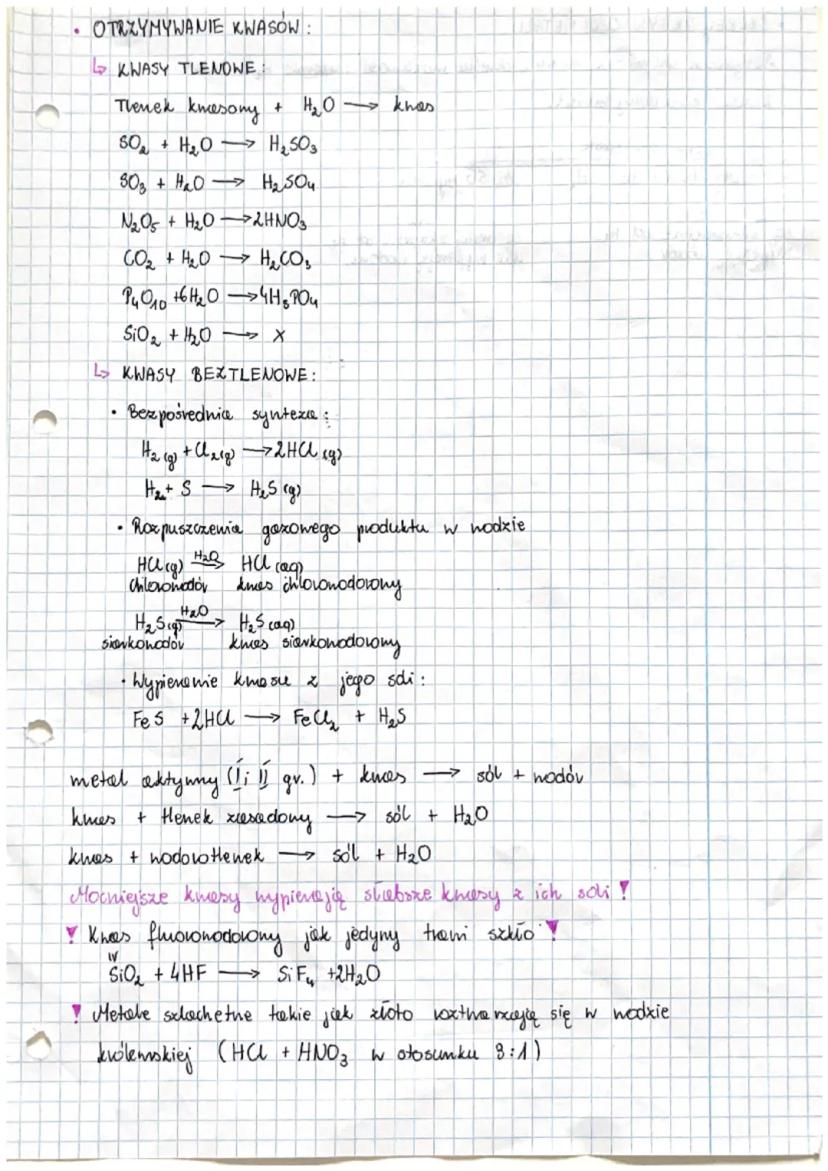 • OTRZYMYWANIE KWASÓW:
↳ KWASY TLENOWE:
Tlenek kwasowy + H₂O → kwas
SO₂ + H₂O → H₂SO₃
SO₃ + H₂O → H₂SO₄
N₂O₅ + H₂O → 2HNO₃
CO₂ + H₂O → H₂CO₃
P₄O₁₀ + 6H₂O → 4H₃PO₄
SiO₂ + H₂O → X
↳ KWASY BEZTLENOWE:
• Bezpośrednia synteza:
H₂(g) + Cl₂(g) → 2HCl(g)
H₂ + S → H₂S(g)
• Rozpuszczenia gazowego produktu w wodzie
HCl(g) H₂O→ HCl(aq)
chlorowodór kwas chlorowodorowy
H₂S(g) H₂O→ H₂S(aq)
siarkowodór kwas siarkowodorowy
• Wypieranie kwasu z jego soli:
FeS + 2HCl → FeCl₂ + H₂S
metal aktywny (I i II gr.) + kwas → sól + wodór
kwas + tlenek zasadowy → sól + H₂O
kwas + wodorotlenek → sól + H₂O
Mocniejsze kwasy wypierają słabsze kwasy z ich soli!
! Kwas fluorowodorowy jak jedyny trawi szkło!
IV
SiO₂ + 4HF → SiF₄ + 2H₂O
! Metale szlachetne takie jak złoto roztwarzają się w wodzie
królewskiej (HCl + HNO₃ w stosunku 3:1)